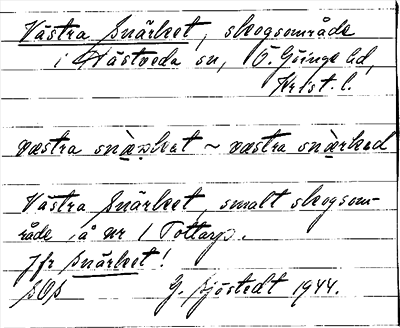 Västra Snärket, skogsområde
i Hästveda sn, Ö. Göinge hd,
Krist. l.
væstra snæ̀ʀket ~ væstra snæ̀rked
Västra Snärket, smalt skogsom-
råde å nr 1 Tottarp.
Jfr Snärket!
SOS G. Sjöstedt 1944.